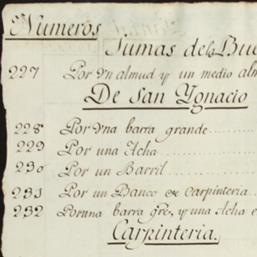 Numeros
Sumas de la Bue
227 Por vn almud y un medio alm
De San Ygnacio
228 Por vna barra grande
229 Por una Acha
230 Por un Barril
231 Por un Banco de Carpinteria
232 Por una barra gre, y una Acha e
Carpinteria.